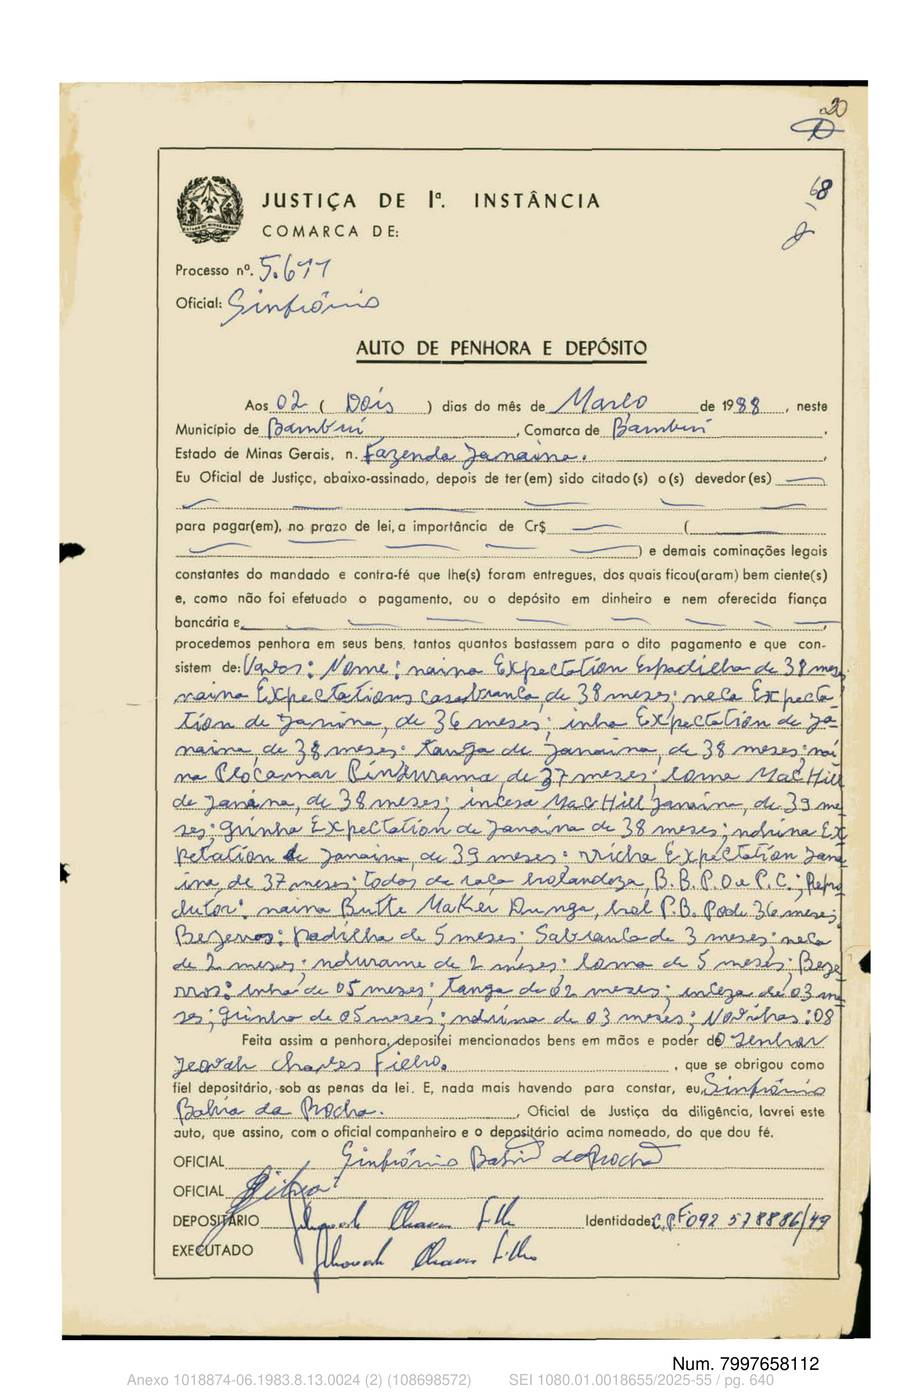 20
68
JUSTIÇA DE Iª. INSTÂNCIA
COMARCA DE:
Processo nº. 5.611
Oficial: Sinfrônio
AUTO DE PENHORA E DEPÓSITO
Aos 02 ( Dois ) dias do mês de Março de 1988, neste
Município de Bambuí, Comarca de Bambuí.
Estado de Minas Gerais, n. Fazenda Janaina.
Eu Oficial de Justiça, abaixo-assinado, depois de ter(em) sido citado(s) o(s) devedor(es)
para pagar(em), no prazo de lei, a importância de Cr$ (
) e demais cominações legais
constantes do mandado e contra-fé que lhe(s) foram entregues, dos quais ficou(aram) bem ciente(s)
e, como não foi efetuado o pagamento, ou o depósito em dinheiro e nem oferecida fiança
bancária e,
procedemos penhora em seus bens, tantos quantos bastassem para o dito pagamento e que con-
sistem de: Vacas: Nome: naina Expectation Espadilha de 38 mes
naina Expectations casabranca, de 38 meses; neca Expecta-
tion de Janina, de 36 meses; inha Expectation de Ja-
naina, de 38 meses; tanga de Janaina, de 38 meses; nai
na Plocamar Pindurama, de 37 meses; lorna MacHill
de Janaina, de 38 meses; inceza MacHill Janaina, de 39 me
ses; grinha Expectation de Janaina de 38 meses; ndrina Ex
petation de Janaina, de 39 meses; rricha Expectation Jana
ina, de 37 meses; todas da raça holandeza, B.B.P.O e P.C.; Repro
dutor: naina Butte Maker Dunga, hol P.B. Pode 36 meses;
Bezerras: padilha de 5 meses; Sabranca de 3 meses; neca
de 2 meses; ndurame de 2 meses; lorna de 5 meses; Beze
rros: inha de 05 meses; tanga de 02 meses; inceza de 03 me
ses; grinha de 05 meses; ndrina de 03 meses; Novilhas: 08
Feita assim a penhora, depositei mencionados bens em mãos e poder do Senhor
Jeovah Chaves Filho, que se obrigou como
fiel depositário, sob as penas da lei. E, nada mais havendo para constar, eu, Sinfrônio
Bahia da Rocha., Oficial de Justiça da diligência, lavrei este
auto, que assino, com o oficial companheiro e o depositário acima nomeado, do que dou fé.
OFICIAL Sinfrônio Bahia da Rocha
OFICIAL
DEPOSITÁRIO Jehovah Chaves Filho Identidade: C.P.F 092 578886/49
EXECUTADO Jehovah Chaves Filho
Num. 7997658112
Anexo 1018874-06.1983.8.13.0024 (2) (108698572) SEI 1080.01.0018655/2025-55 / pg. 640